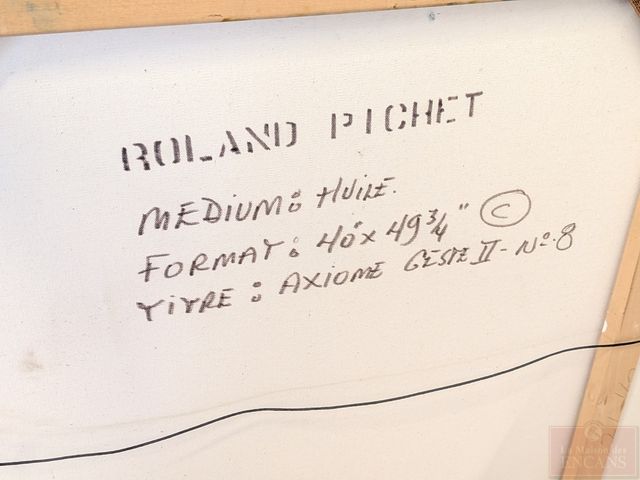 ROLAND PICHET
MEDIUM: HUILE.
FORMAT: 40" x 49 3/4" ©
TITRE: AXIOME GESTE II - No. 8
La Maison des
ENCANS